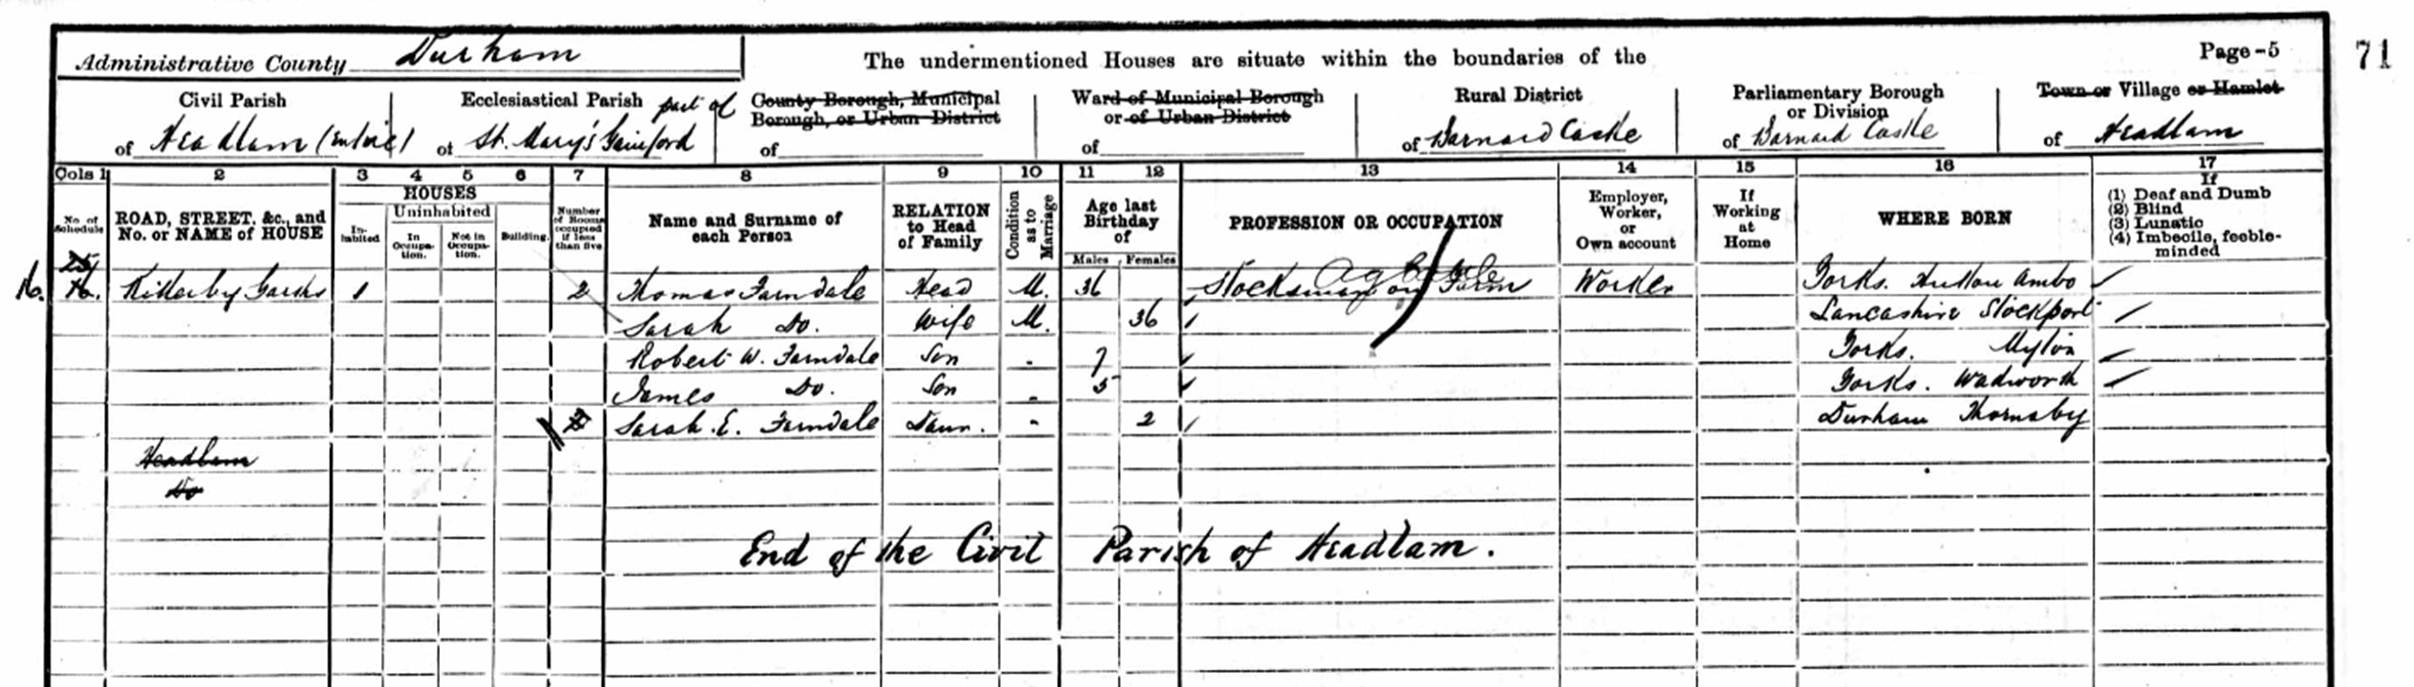 Administrative County Durham
The undermentioned Houses are situate within the boundaries of the
Page-5
71
Civil Parish
of Headlam (Entire)
Ecclesiastical Parish part of
of St. Mary's Gainford
County Borough, Municipal
Borough, or Urban District
of
Ward of Municipal Borough
or of Urban District
of
Rural District
of Barnard Castle
Parliamentary Borough
or Division
of Barnard Castle
Town or Village or Hamlet
of Headlam
Cols 1 2 3 4 5 6 7 8 9 10 11 12 13 14 15 16 17
No. of Schedule
ROAD, STREET, &c., and
No. or NAME of HOUSE
HOUSES
In-habited
Uninhabited
In Occupa-tion.
Not in Occupa-tion.
Building.
Number of Rooms occupied if less than five
Name and Surname of
each Person
RELATION
to Head
of Family
Condition as to Marriage
Age last
Birthday
of
Males Females
PROFESSION OR OCCUPATION
Employer,
Worker,
or
Own account
If
Working
at
Home
WHERE BORN
If
(1) Deaf and Dumb
(2) Blind
(3) Lunatic
(4) Imbecile, feeble-
minded
1 2 Thomas Farndale Head M. 36 Stocksman on Farm Worker Yorks. Hutton Ambo
Sarah Do. Wife M. 36 Lancashire Stockport
Robert W. Farndale Son - 7 Yorks. Myton
James Do. Son - 5 Yorks. Wadworth
Sarah. E. Farndale Daur. - 2 Durham Thornaby
Headlam
Do
End of the Civil Parish of Headlam.